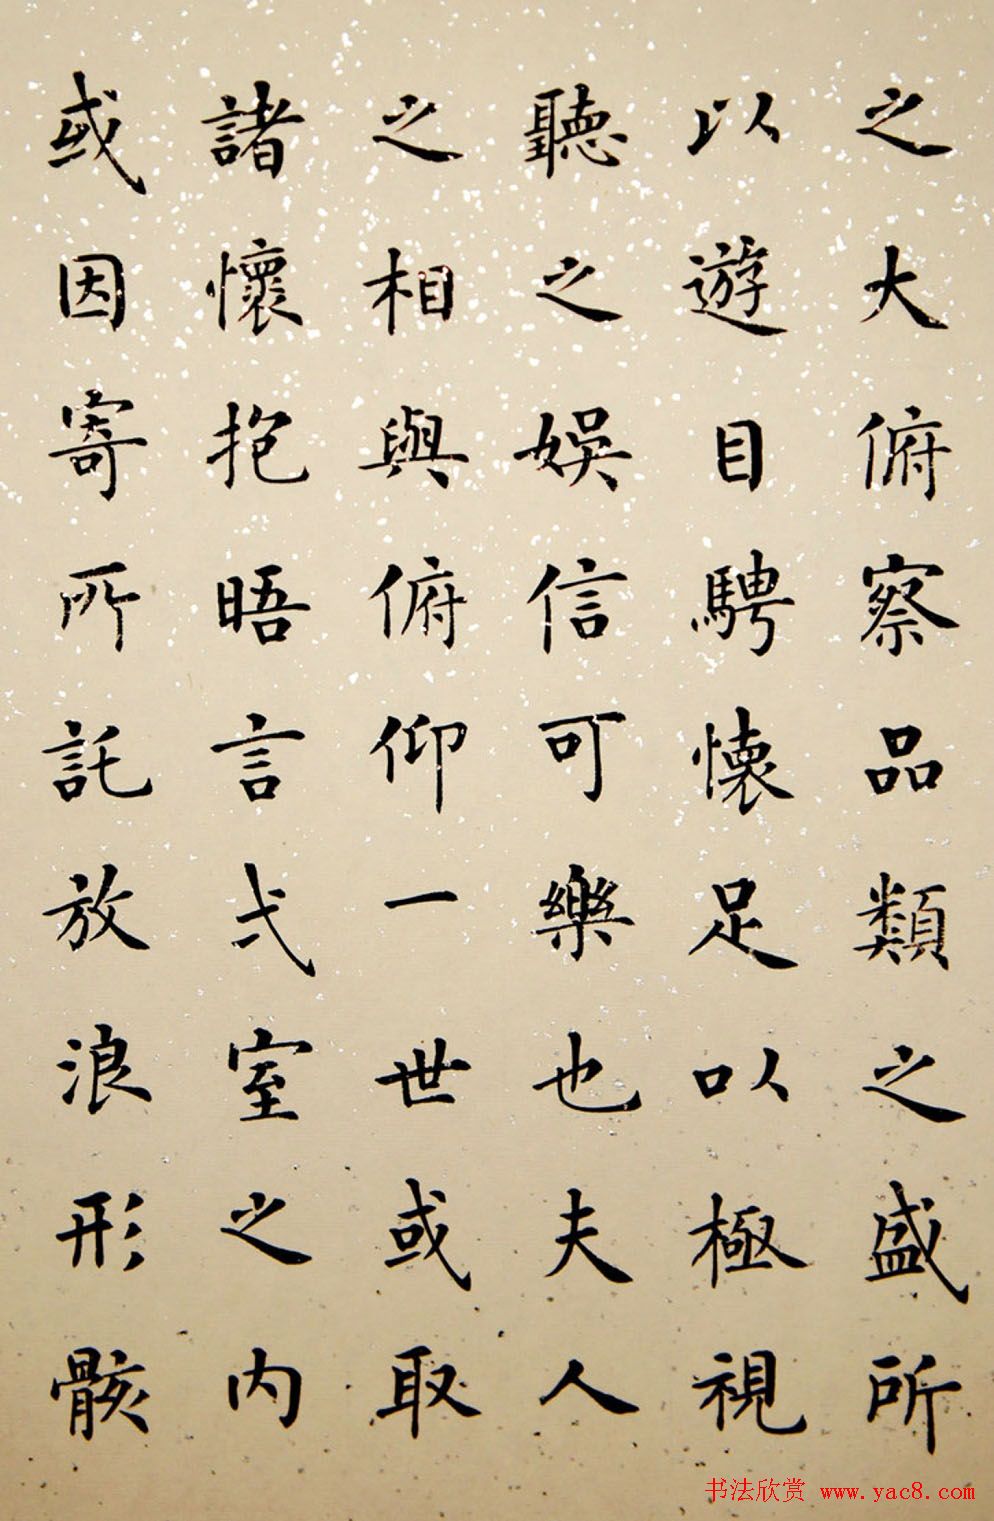 之大俯察品類之盛所
以遊目騁懐足以極視
聽之娛信可樂也夫人
之相與俯仰一世或取
諸懷抱晤言弌室之内
或因寄所託放浪形骸
书法欣赏 www.yac8.com